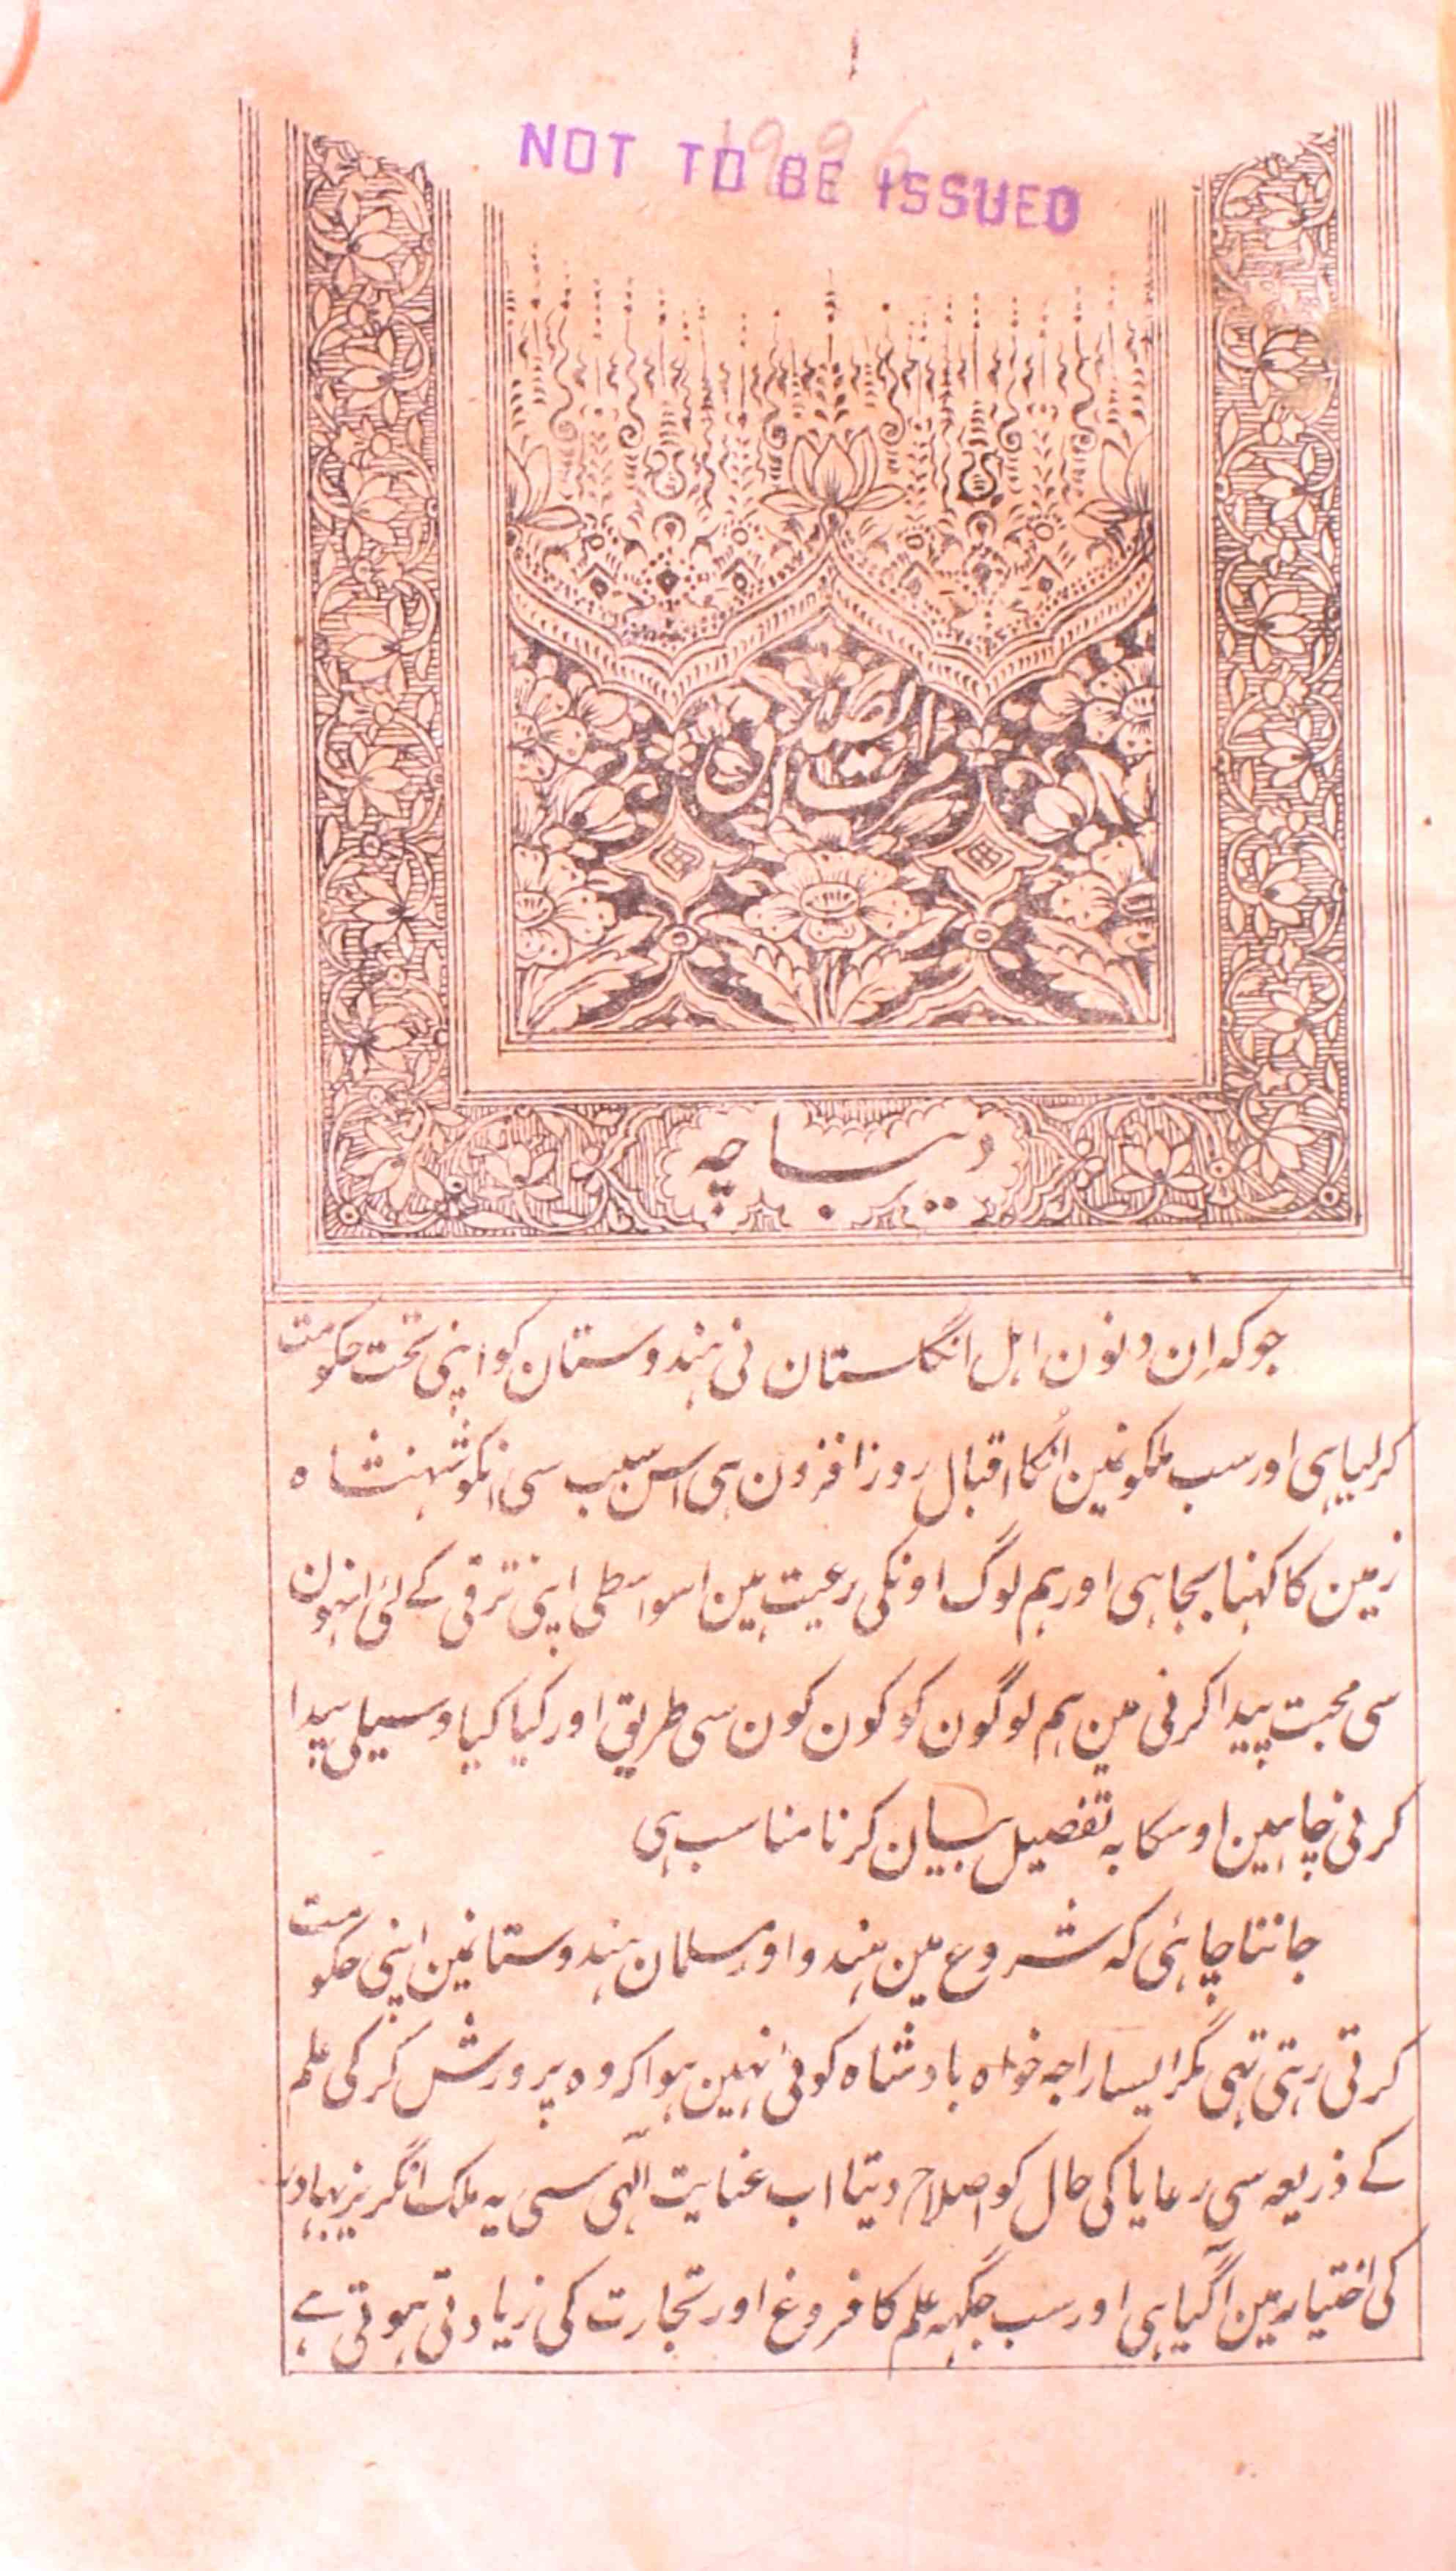 ۱
1996
NOT TO BE ISSUED
مرت الصدق
دیباچہ
جو کہ اِن دنون اہل انگلستان نی ہندوستان کو اپنی تحت حکومت
کرلیا ہی اور سب ملکونمین اُنکا اقبال روز افزون ہی اس سبب سی انکو شہنشاہ
زمین کا کہنا بجا ہی اور ہم لوگ اونکی رعیت ہین اسواسطی اپنی ترقی کے لئی انہون
سی محبت پیدا کرنی مین ہم لوگون کو کون کون سی طریق اور کیا کیا وسیلی پیدا
کرنی چاہیین اوسکا بہ تفصیل بیان کرنا مناسب ہی
جاننا چاہئی کہ شروع مین ہندو اور مسلمان ہندوستانمین اپنی حکومت
کرتی رہتی تہی مگر ایسا راجہ خواہ بادشاہ کوئی نہین ہوا کہ وہ پرورش کر کی علم
کے ذریعہ سی رعایا کی حال کو اصلاح دیتا اب عنایت الٓہی سی یہ ملک انگریز بہادر
کی اختیار مین آگیا ہی اور سب جگہہ علم کا فروغ اور تجارت کی زیادتی ہوتی ہے